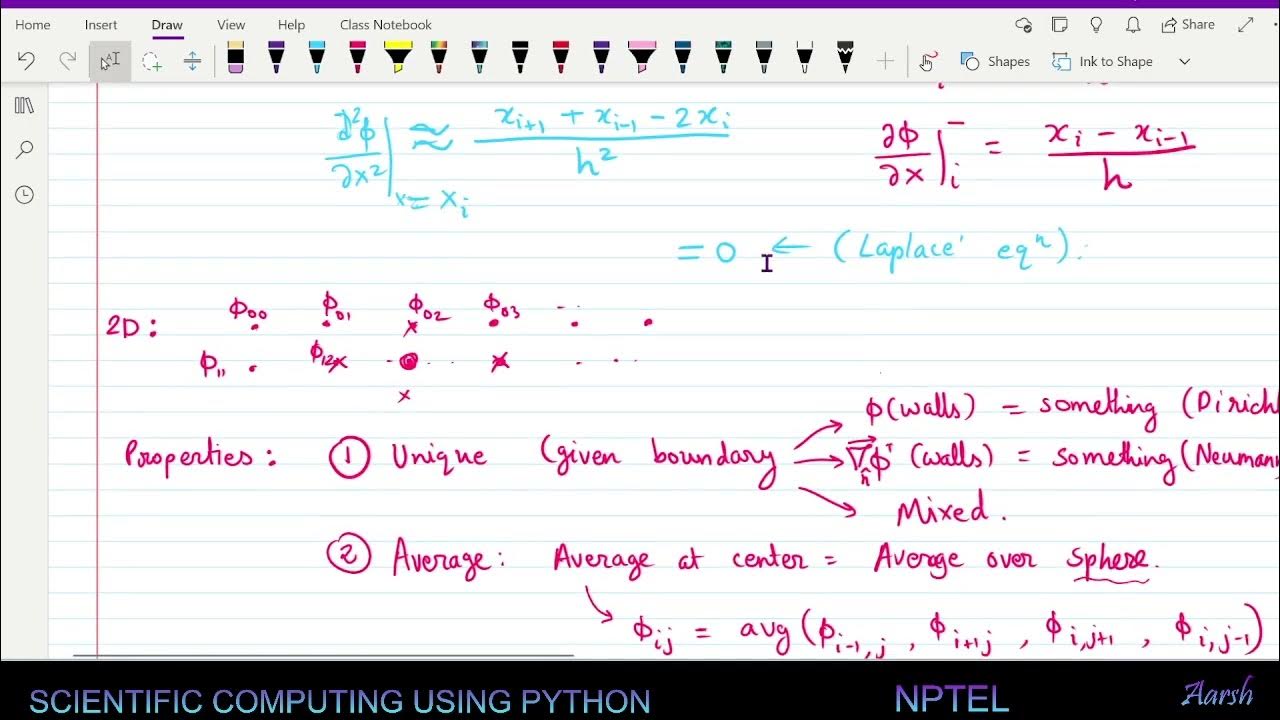 Home Insert Draw View Help Class Notebook Share
Shapes Ink to Shape
∂²ϕ/∂x² |x = xᵢ ≈ (xᵢ₊₁ + xᵢ₋₁ − 2xᵢ)/h²
∂ϕ/∂x |ᵢ⁻ = (xᵢ − xᵢ₋₁)/h
= 0 ← (Laplace' eqⁿ).
2D: ϕ₀₀ ϕ₀₁ ϕ₀₂ ϕ₀₃
ϕ₁₁ ϕ₁₂
ϕ(walls) = something (Dirichl
Properties: ① Unique (given boundary ∇n̂ϕ (walls) = something (Neumann
Mixed.
② Average: Average at center = Average over sphere.
ϕᵢⱼ = avg(ϕᵢ₋₁,ⱼ , ϕᵢ₊₁ⱼ , ϕᵢ,ⱼ₊₁ , ϕᵢ,ⱼ₋₁)
SCIENTIFIC COMPUTING USING PYTHON NPTEL Aarsh